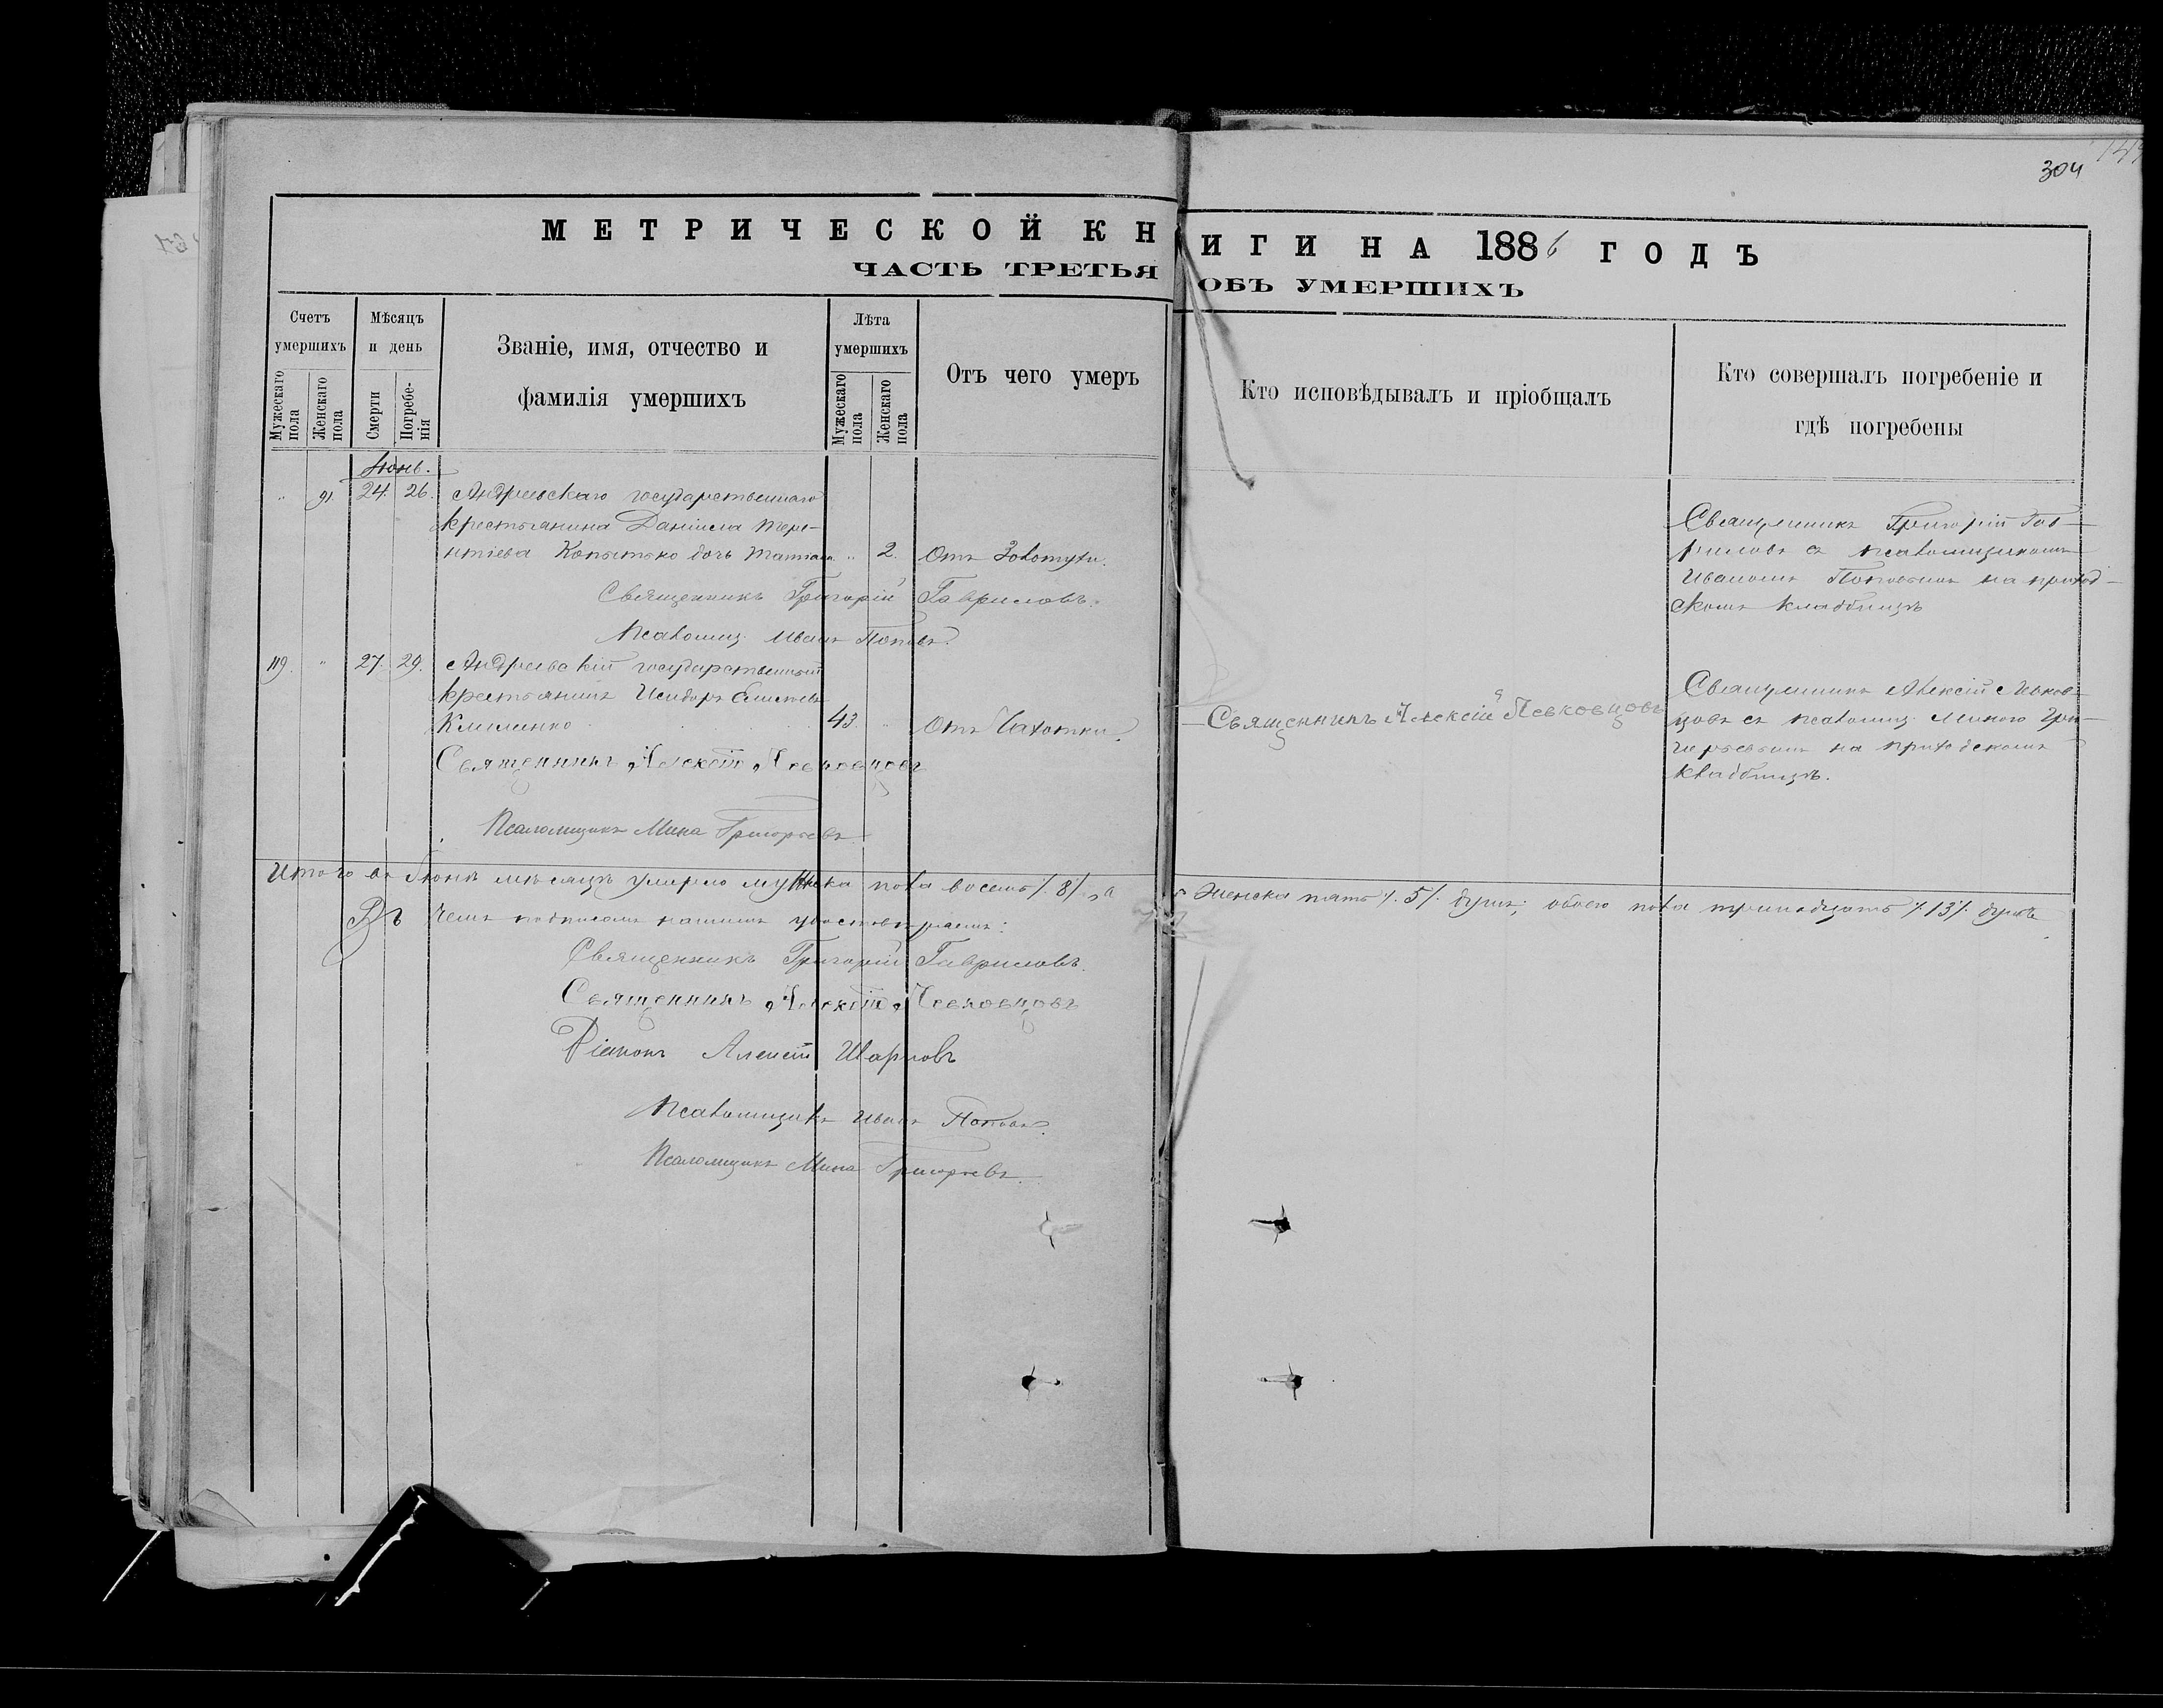 304
МЕТРИЧЕСКОЙ КНИГИ НА 1886 ГОДЪ
ЧАСТЬ ТРЕТЬЯ ОБЪ УМЕРШИХЪ
Счетъ умершихъ
Мужескаго пола
Женскаго пола
Мѣсяцъ и день
Смерти
Погребенія
Званіе, имя, отчество и
фамилія умершихъ
Лѣта умершихъ
Мужескаго пола
Женскаго пола
Отъ чего умеръ
Кто исповѣдывалъ и пріобщалъ
Кто совершалъ погребеніе и
гдѣ погребены
Іюнь.
" 91. 24. 26. Андреевскаго государственнаго
крестьянина Даніила Тере-
нтіева Копытько дочь " 2. Отъ Золотухи.
Священникъ Григорій Гавриловъ.
Псаломщ. Иванъ Поповъ.
Священникъ Григорій Гав-
риловъ съ псаломщикомъ
Иваномъ Поповымъ на приход-
скомъ кладбищѣ
119. " 27. 29. Андреевскій государственный
крестьянинъ Исидоръ
Клименко 43. " Отъ Чахотки.
Священникъ Алексій Левковцовъ
Псаломщикъ Мина Григорьевъ
Священникъ Алексій Левковцовъ
Священникъ Алексій Левков-
цовъ съ псаломщ. Миною Гри-
горьевымъ на приходскомъ
кладбищѣ.
Итого въ Іюнѣ мѣсяцѣ умерло мужеска пола восемь /.8/. а женска пять /.5/. душъ, обоего пола тринадцать /.13/. душъ
Въ чемъ подписомъ нашимъ удостовѣряемъ:
Священникъ Григорій Гавриловъ.
Священникъ Алексій Левковцовъ
Діаконъ Алексій Шарповъ
Псаломщикъ Иванъ Поповъ.
Псаломщикъ Мина Григорьевъ.